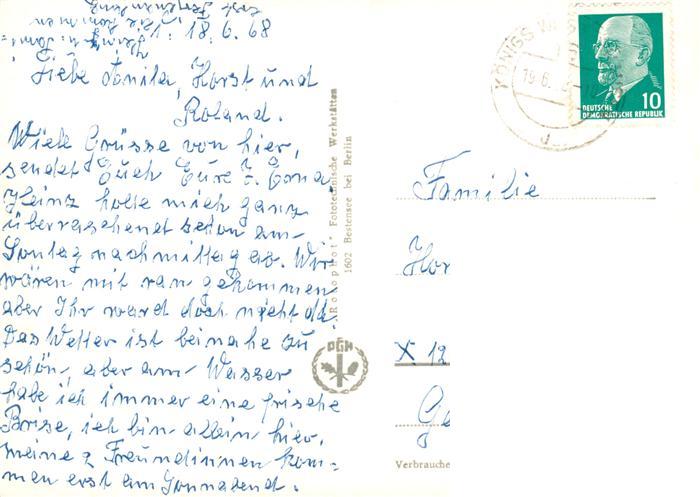 18.6.68
Liebe Tonila, Horst und
Roland.
Viele Grüsse von hier,
sendet Euch Eure T. Erna
Heinz holte mich ganz
überraschend schon am
Sontag nachmittag ab. Wir
wären mit ran gekommen
aber Ihr ward doch nicht da.
Das Wetter ist beinahe zu
schön, aber am Wasser
habe ich immer eine frische
Brise, ich bin allein hier.
meine 2 Freundinnen kom=
men erst am Sonnabend.
"Rokophot" Fototechnische Werkstätten
1602 Bestensee bei Berlin
PGH
KÖNIGS W
19.6.
DEUTSCHE
DEMOKRATISCHE REPUBLIK
10
Familie
Hor
X 12
Ge
Verbrauche